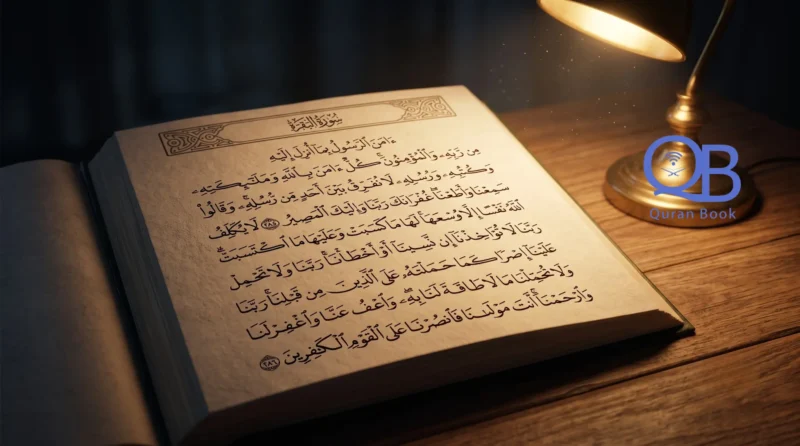 سُورَةُ البَقَرَةِ
ءَامَنَ ٱلرَّسُولُ بِمَآ أُنزِلَ إِلَيْهِ
مِن رَّبِّهِۦ وَٱلْمُؤْمِنُونَ كُلٌّ ءَامَنَ بِٱللَّهِ وَمَلَٰٓئِكَتِهِۦ
وَكُتُبِهِۦ وَرُسُلِهِۦ لَا نُفَرِّقُ بَيْنَ أَحَدٍ مِّن رُّسُلِهِۦ وَقَالُوا۟
سَمِعْنَا وَأَطَعْنَا غُفْرَانَكَ رَبَّنَا وَإِلَيْكَ ٱلْمَصِيرُ ٢٨٥ لَا يُكَلِّفُ
ٱللَّهُ نَفْسًا إِلَّا وُسْعَهَا لَهَا مَا كَسَبَتْ وَعَلَيْهَا مَا ٱكْتَسَبَتْ
رَبَّنَا لَا تُؤَاخِذْنَآ إِن نَّسِينَآ أَوْ أَخْطَأْنَا رَبَّنَا وَلَا تَحْمِلْ
عَلَيْنَآ إِصْرًا كَمَا حَمَلْتَهُۥ عَلَى ٱلَّذِينَ مِن قَبْلِنَا رَبَّنَا
وَلَا تُحَمِّلْنَا مَا لَا طَاقَةَ لَنَا بِهِۦ وَٱعْفُ عَنَّا وَٱغْفِرْ لَنَا
وَٱرْحَمْنَآ أَنتَ مَوْلَىٰنَا فَٱنصُرْنَا عَلَى ٱلْقَوْمِ ٱلْكَٰفِرِينَ ٢٨٦
QB
Quran Book